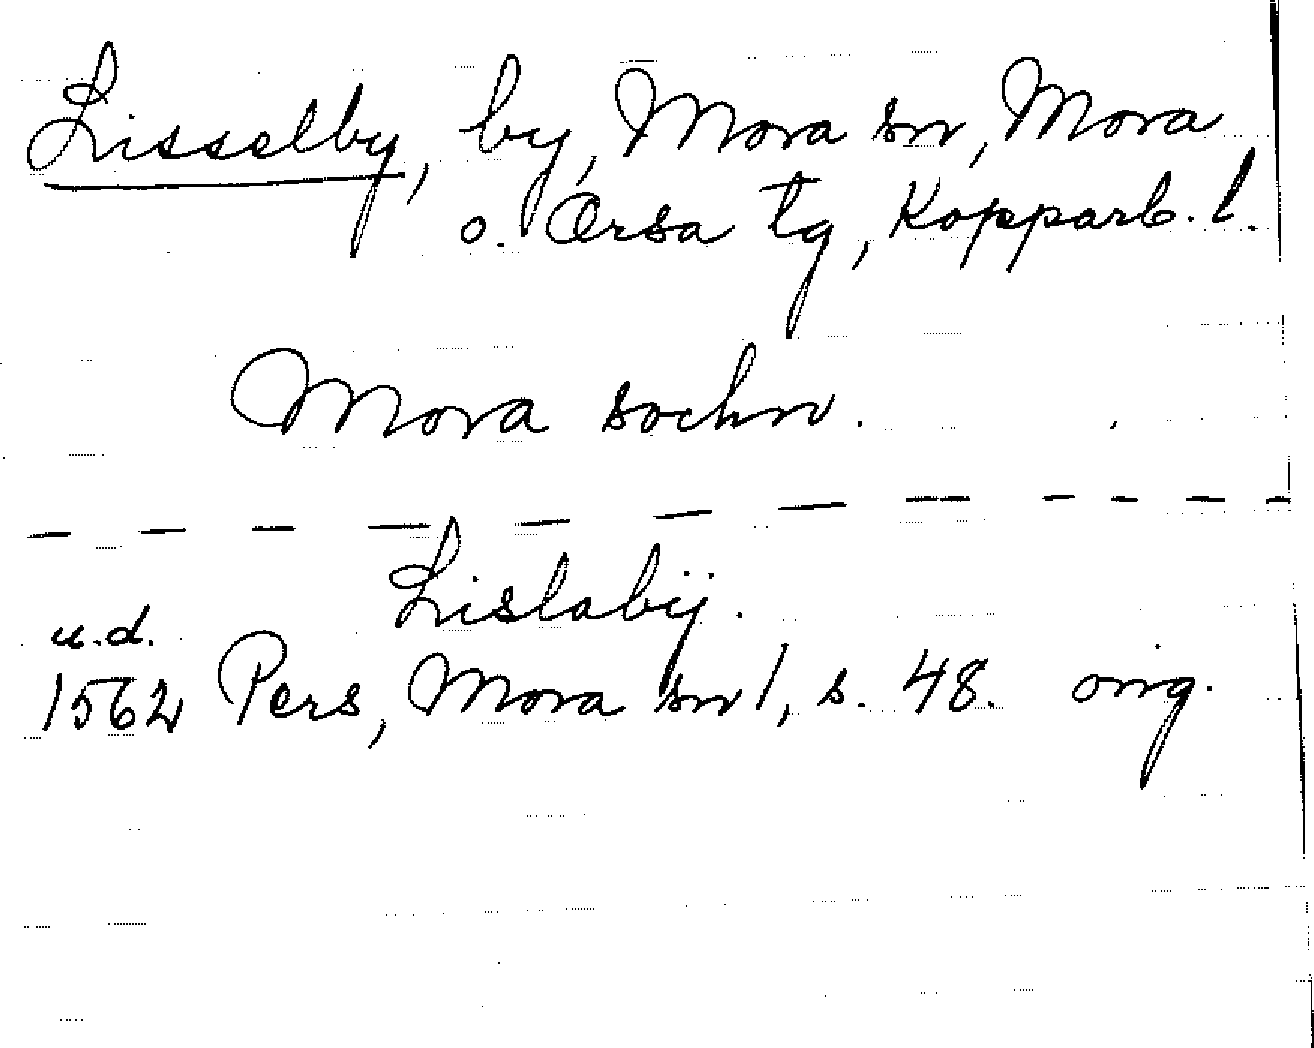 Lisselby, by, Mora sn, Mora
o. Orsa tg, Kopparb. l.
Mora sochn.
Lislabÿ.
u.d.
1562 Pers, Mora sn 1, s. 48. orig.